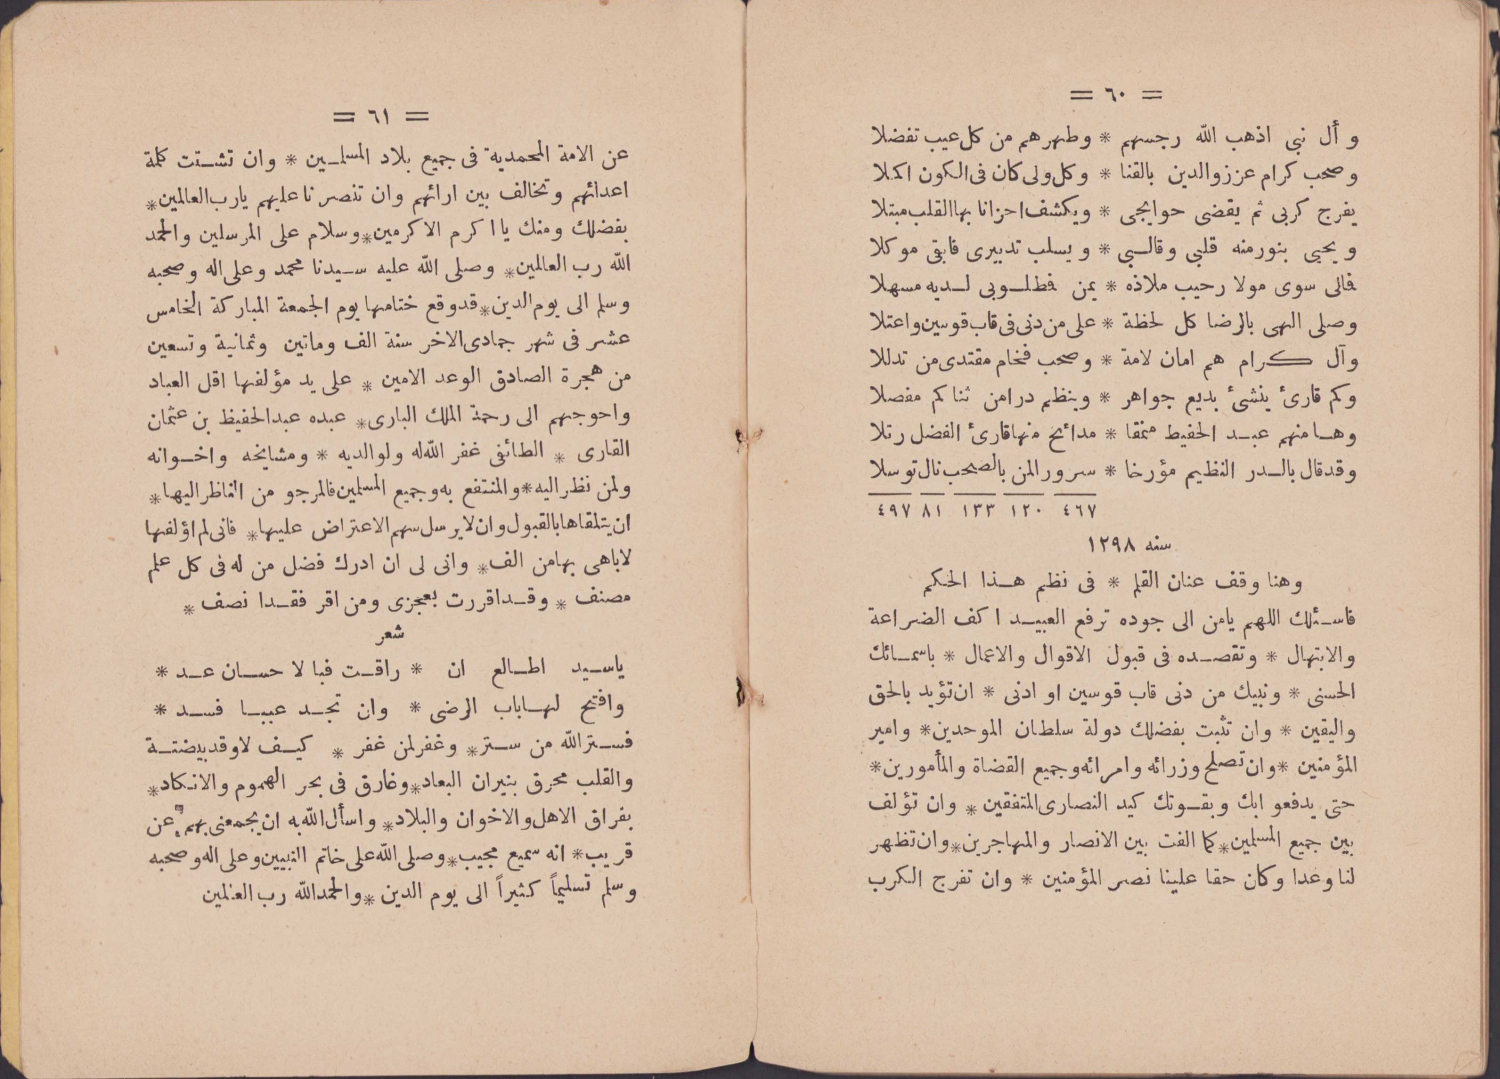 = ٦٠ =
و أل نبي اذهب الله رجسهم * وطهرهم من كل عيب تفضلا
وصحب كرام عزز والدين بالقنا * وكل ولى كان فى الكون اكملا
يفرج كربى ثم يقضى حوايجى * ويكشف احزانا بها القلب مبتلا
ويحيى بنور منه قلبي وقالبي * ويسلب تدبيرى فابقى موكلا
فالى سوى مولا رحيب ملاذه * يمن فطلوبى لديه مسهلا
وصلى الهى بالرضا كل لحظة * على من دنى فى قاب قوسين واعتلا
وآل كرام هم امان لامة * وصحب فخام مقتدى من تدللا
وكم قارئ ينشئ بديع جواهر * وبنظم در امن ثنا كم مفصلا
وها منهم عبد الحفيظ منمقا * مدائح منها قارئ الفضل رتلا
وقد قال بالدر النظيم مؤرخا * سرور المن بالصحب نال توسلا
٤٦٧ ١٢٠ ١٣٣ ٨١ ٤٩٧
سنه ١٢٩٨
وهنا وقف عنان القلم * فى نظم هذا الحكم
فاسئلك اللهم يامن الى جوده ترفع العبيد اكف الضراعة
والابتهال * وتقصده فى قبول الاقوال والاعمال * باسمائك
الحسنى * ونبيك من دنى قاب قوسين او ادنى * ان تؤيد بالحق
واليقين * وان تثبت بفضلك دولة سلطان الموحدين * وامير
المؤمنين * وان تصلح وزرائه وامرائه وجميع القضاة والمأمورين *
حتى يدفعو ابك وبقوتك كيد النصارى المتفقين * وان تؤلف
بين جميع المسلمين * كما الفت بين الانصار والمهاجرين * وان تظهر
لنا وعدا وكان حقا علينا نصر المؤمنين * وان تفرج الكرب
= ٦١ =
عن الامة المحمدية فى جميع بلاد المسلمين * وان تشتت كلمة
اعدائهم وتخالف بين ارائهم وان تنصرنا عليهم يارب العالمين *
بفضلك ومنك يا اكرم الاكرمين * وسلام على المرسلين والحمد
الله رب العالمين * وصلى الله عليه سيدنا محمد وعلى اله وصحبه
وسلم الى يوم الدين * قد وقع ختامها يوم الجمعة المباركة الخامس
عشر فى شهر جمادى الاخر سنة الف وماتين وثمانية وتسعين
من هجرة الصادق الوعد الامين * على يد مؤلفها اقل العباد
واحوجهم الى رحمة الملك البارى * عبده عبد الحفيظ بن عثمان
القارى * الطائفى غفر الله له ولوالديه * ومشايخه واخوانه
ولمن نظر اليه * والمنتفع به وجميع المسلمين فالمرجو من الناظر اليها *
ان يتلقاها بالقبول وان لا يرسل سهم الاعتراض عليها * فانى لم اؤلفها
لاباهى بها من الف * وانى لى ان ادرك فضل من له فى كل علم
مصنف * وقد اقررت بعجزى ومن اقر فقدا نصف *
شعر
ياسيد اطالع ان * راقت فبا لا حسان عد *
وافتح لها باب الرضى * وان تجد عيبا فسد *
فستر الله من ستر * وغفر لمن غفر * كيف لا وقد بيضتة
والقلب محرق بنيران البعاد * وغارق فى بحر الهموم والانكاد *
بفراق الاهل والاخوان والبلاد * واسأل الله به ان يجمعنى بهم عن
قريب * انه سميع مجيب * وصلى الله على خاتم النبيين وعلى اله وصحبه
وسلم تسليماً كثيراً الى يوم الدين * والحمد الله رب العالمين